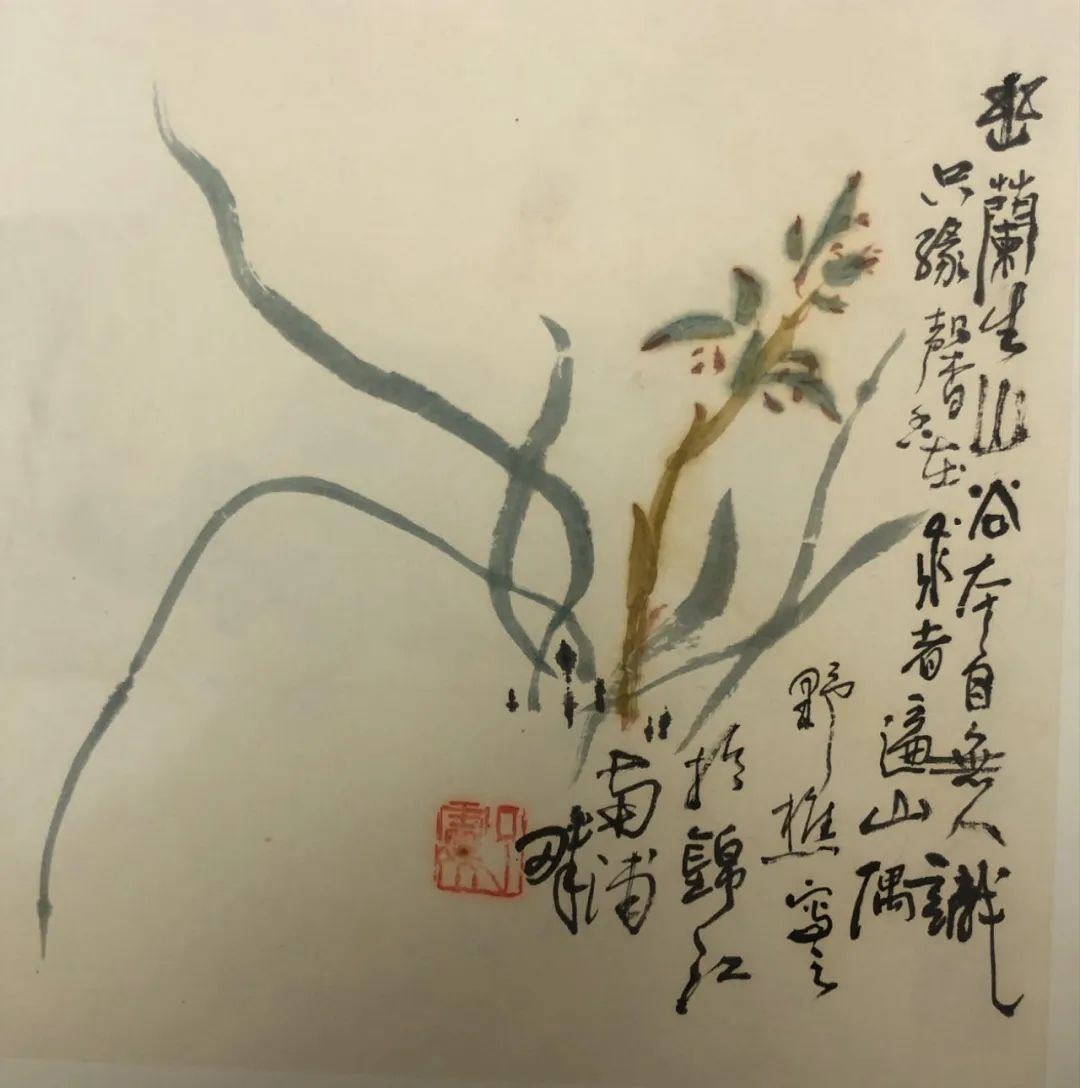 幽蘭生山谷本自無人識
只緣馨香在求者遍山隅
野樵寫之
於錦江
南浦
畔